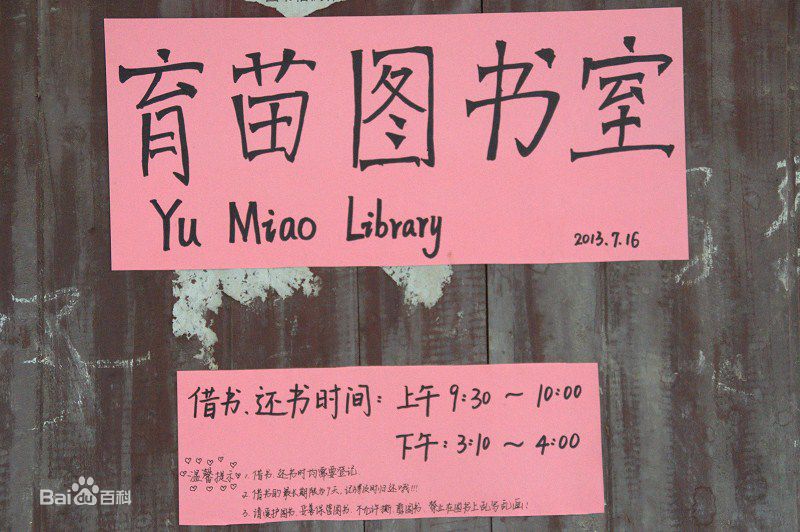 育苗图书室
Yu Miao Library
2013.7.16
借书、还书时间：上午 9:30 ~ 10:00
下午：3:10 ~ 4:00
温馨提示
1. 借书、还书时均需要登记.
2. 借书的最长期限为7天，记得按时归还哦!!!
3. 请爱护图书，妥善保管图书，不允许撕、剪图书，禁止在图书上乱写乱画!
Bai百科